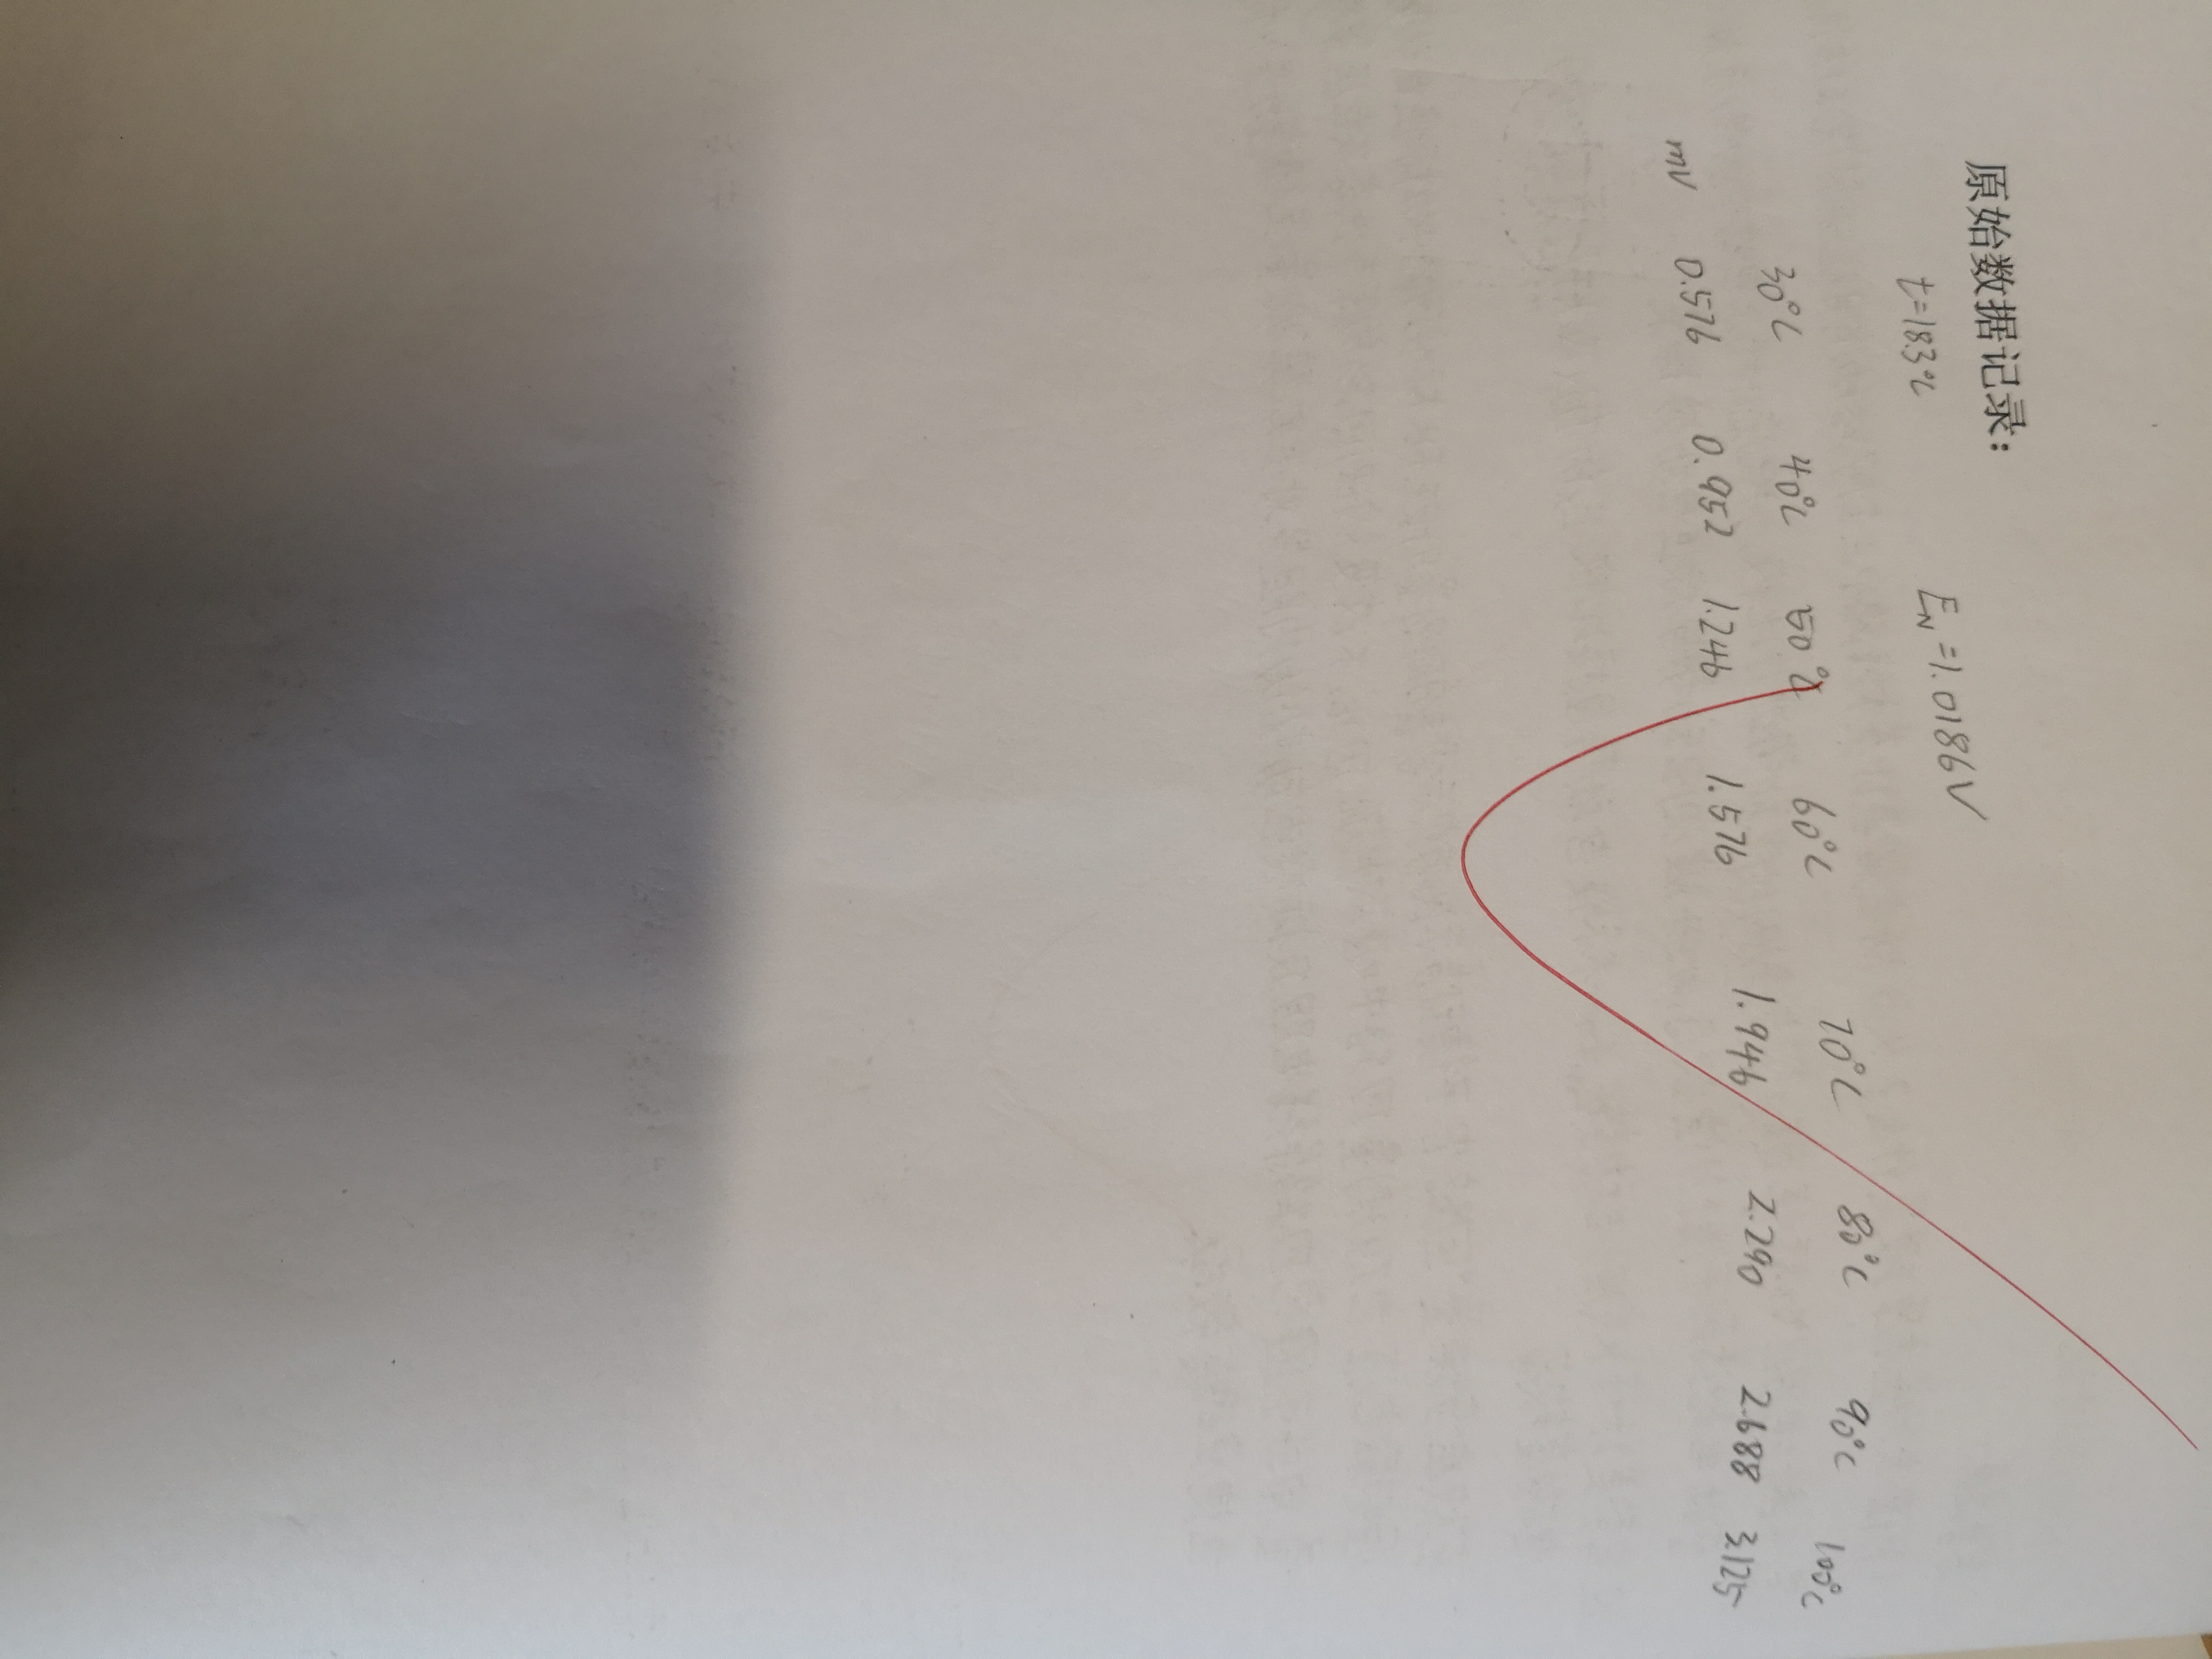 原始数据记录：
t=18.3℃ E_N=1.0186V
30℃ 40℃ 50℃ 60℃ 70℃ 80℃ 90℃ 100℃
mV 0.576 0.952 1.246 1.576 1.946 2.290 2.688 3.125